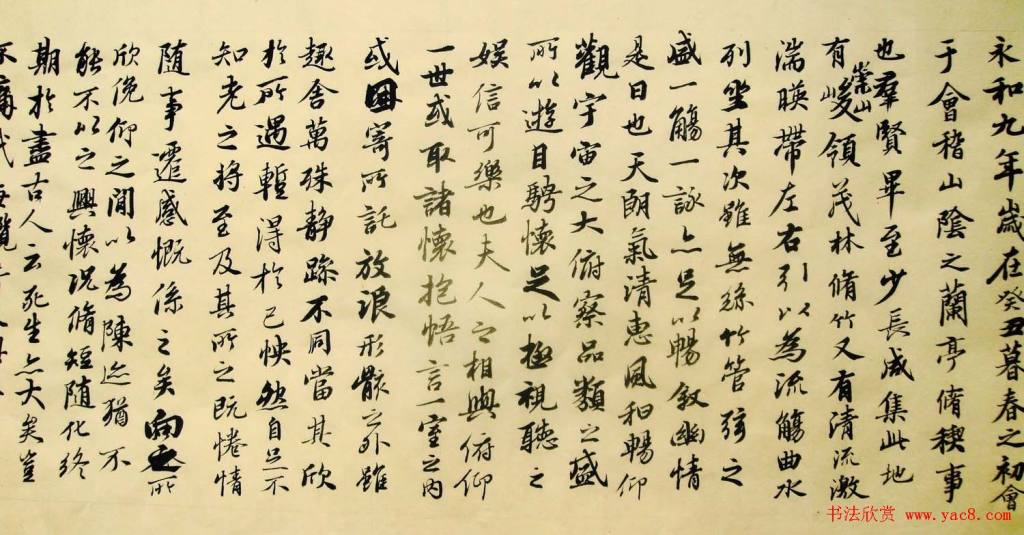 永和九年歲在癸丑暮春之初會
于會稽山陰之蘭亭脩稧事
也羣賢畢至少長咸集此地
有崇山峻領茂林脩竹又有清流激
湍暎帶左右引以為流觴曲水
列坐其次雖無絲竹管弦之
盛一觴一詠亦足以暢敘幽情
是日也天朗氣清惠風和暢仰
觀宇宙之大俯察品類之盛
所以遊目騁懷足以極視聽之
娛信可樂也夫人之相與俯仰
一世或取諸懷抱悟言一室之內
或因寄所託放浪形骸之外雖
趣舍萬殊靜躁不同當其欣
於所遇暫得於己怏然自足不
知老之將至及其所之既惓情
随事遷感慨係之矣向之所
欣俛仰之閒以為陳迹猶不
能不以之興懷況脩短随化終
期於盡古人云死生亦大矣豈
不痛哉每攬
书法欣赏 www.yac8.com